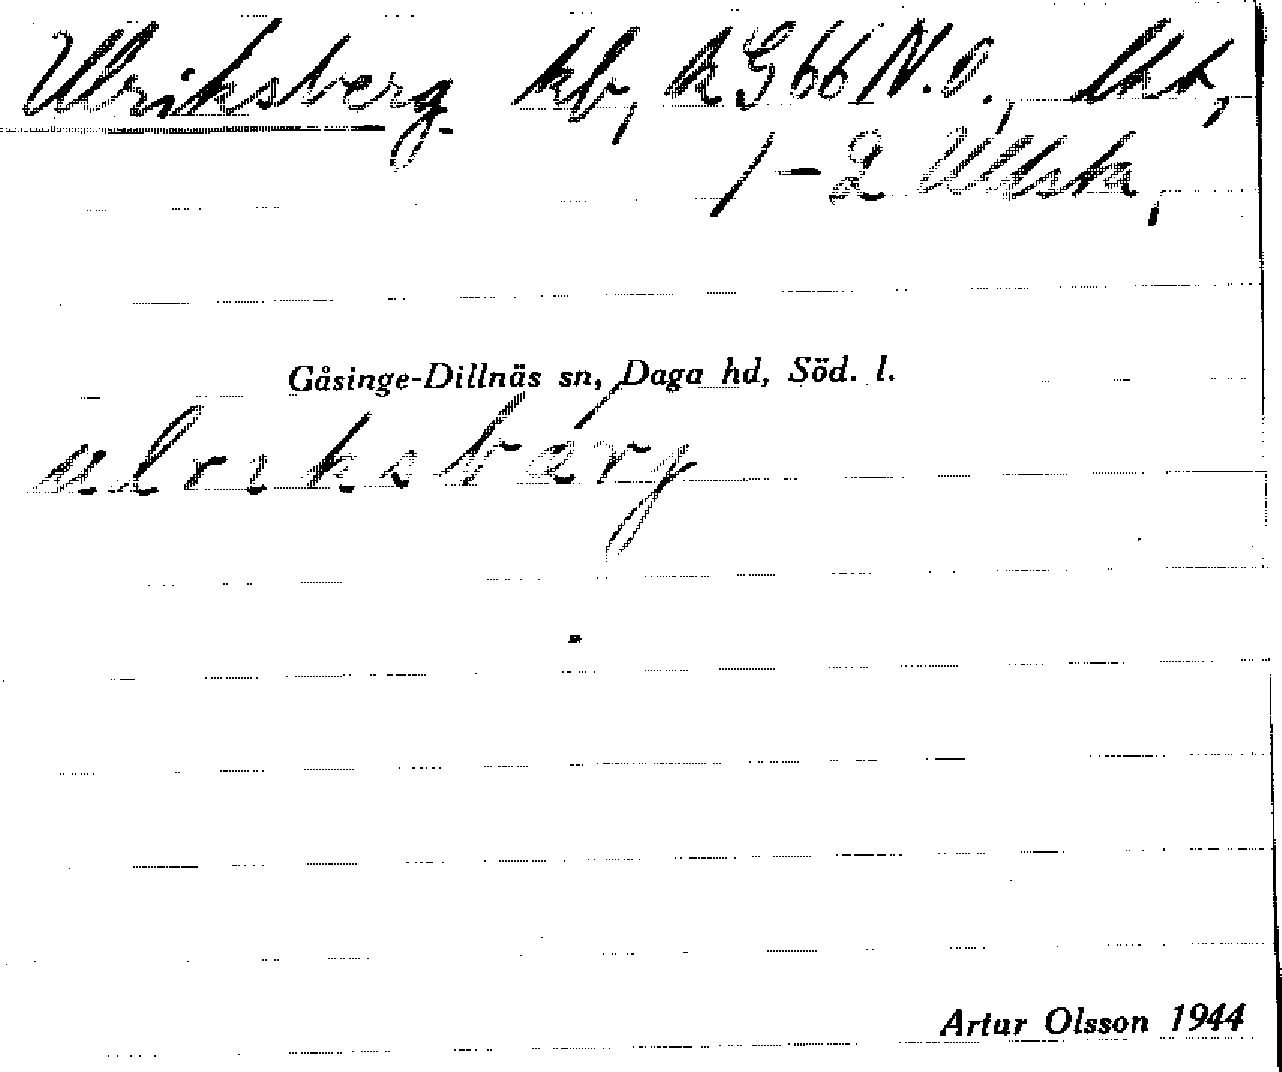 Ulriksberg kb, K G 66 N.O.,
1-2 Ullsta,
Gåsinge-Dillnäs sn, Daga hd, Söd. l.
ulriksbärg
Artur Olsson 1944